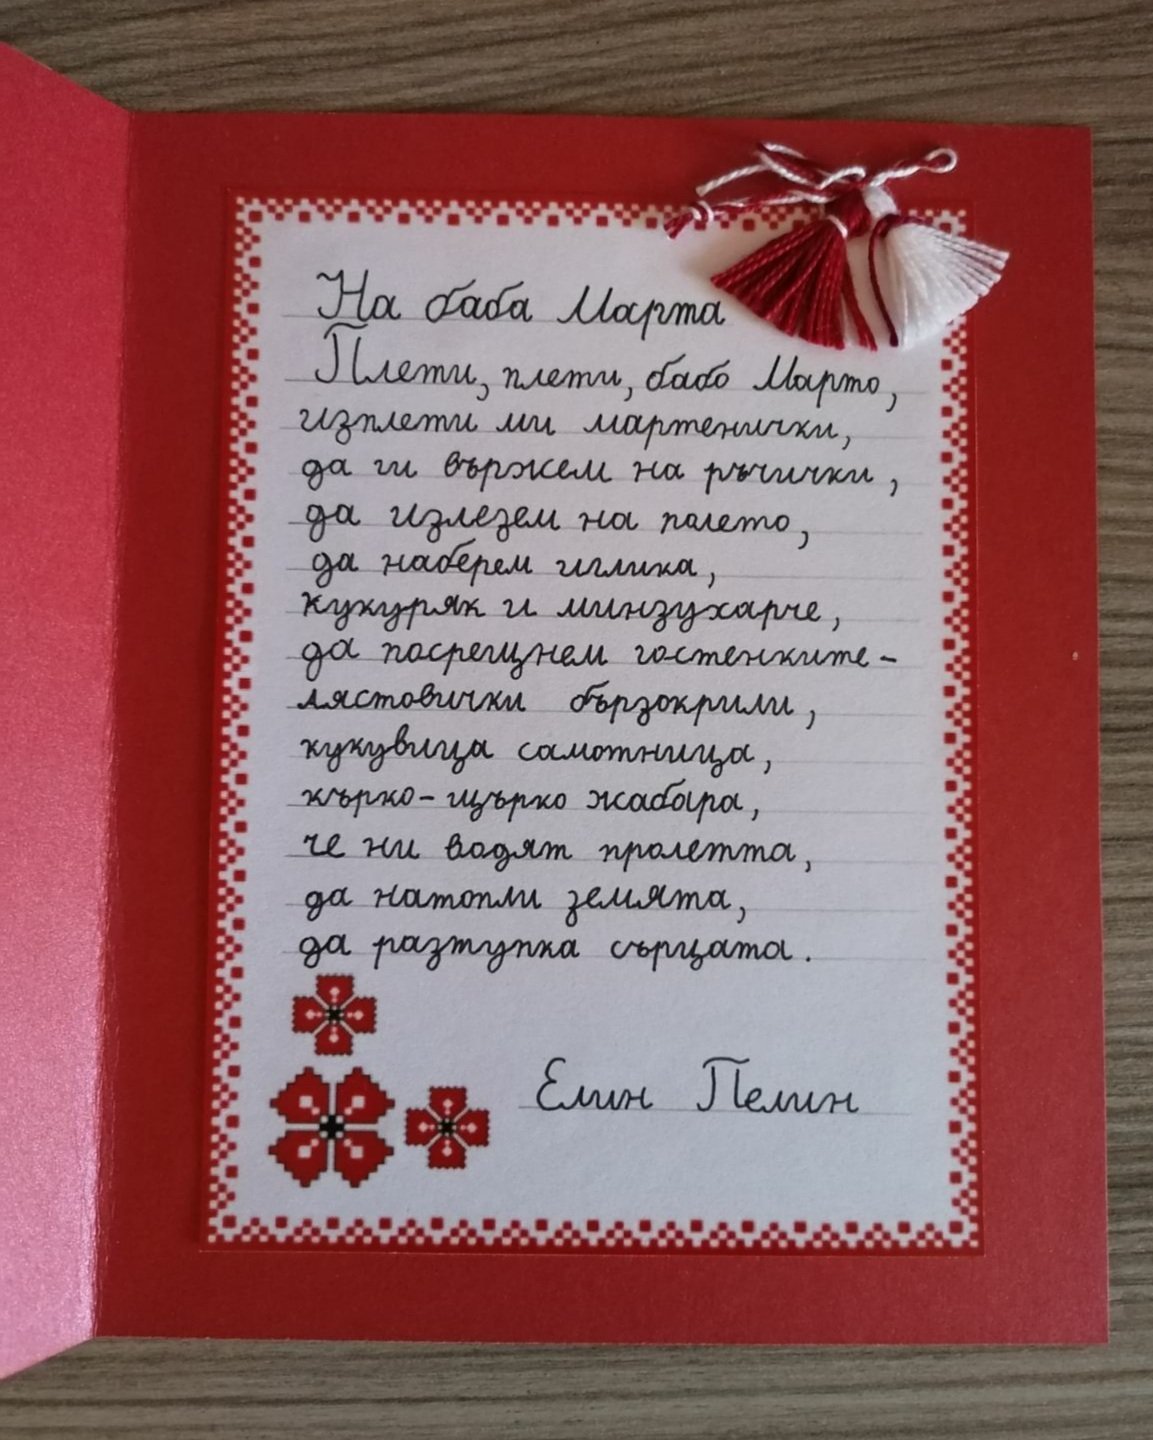 На баба Марта
Плети, плети, бабо Марто,
изплети ми мартенички,
да ги вържем на ръчички,
да излезем на полето,
да наберем иглика,
кукуряк и минзухарче,
да посрещнем гостенките-
лястовички бързокрили,
кукувица самотница,
кърко-щърко жабара,
че ни водят пролетта,
да натопли земята,
да разтупка сърцата.
Елин Пелин